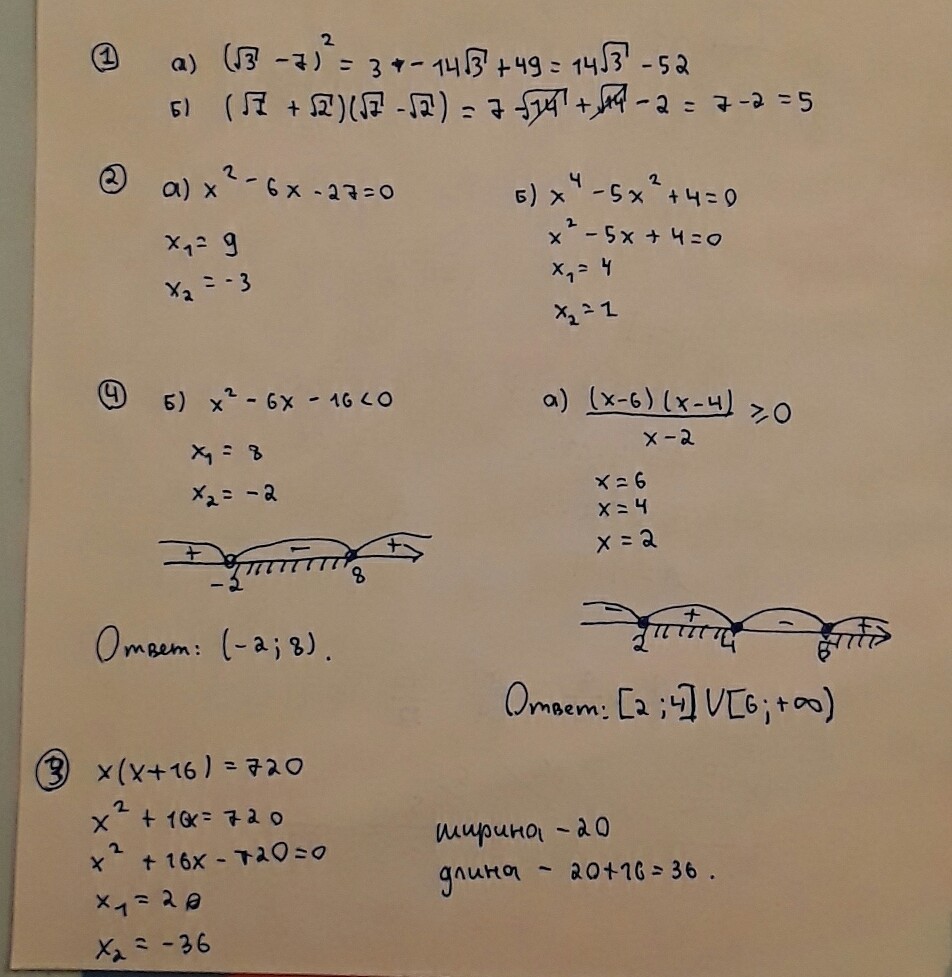 1 а) (√3 - 7)² = 3 - 14√3 + 49 = 14√3 - 52
Б) (√7 + √2)(√7 - √2) = 7 - √14 + √14 - 2 = 7 - 2 = 5
2 а) x² - 6x - 27 = 0
x₁ = 9
x₂ = -3
Б) x⁴ - 5x² + 4 = 0
x² - 5x + 4 = 0
x₁ = 4
x₂ = 1
4 Б) x² - 6x - 16 < 0
x₁ = 8
x₂ = -2
+ - +
-2 8
Ответ: (-2; 8).
а) (x-6)(x-4)
x-2
≥ 0
x = 6
x = 4
x = 2
- + - +
2 4 6
Ответ: [2; 4] V [6; +∞)
3 x(x+16) = 720
x² + 16x = 720
x² + 16x - 720 = 0
x₁ = 20
x₂ = -36
ширина - 20
длина - 20+16 = 36.